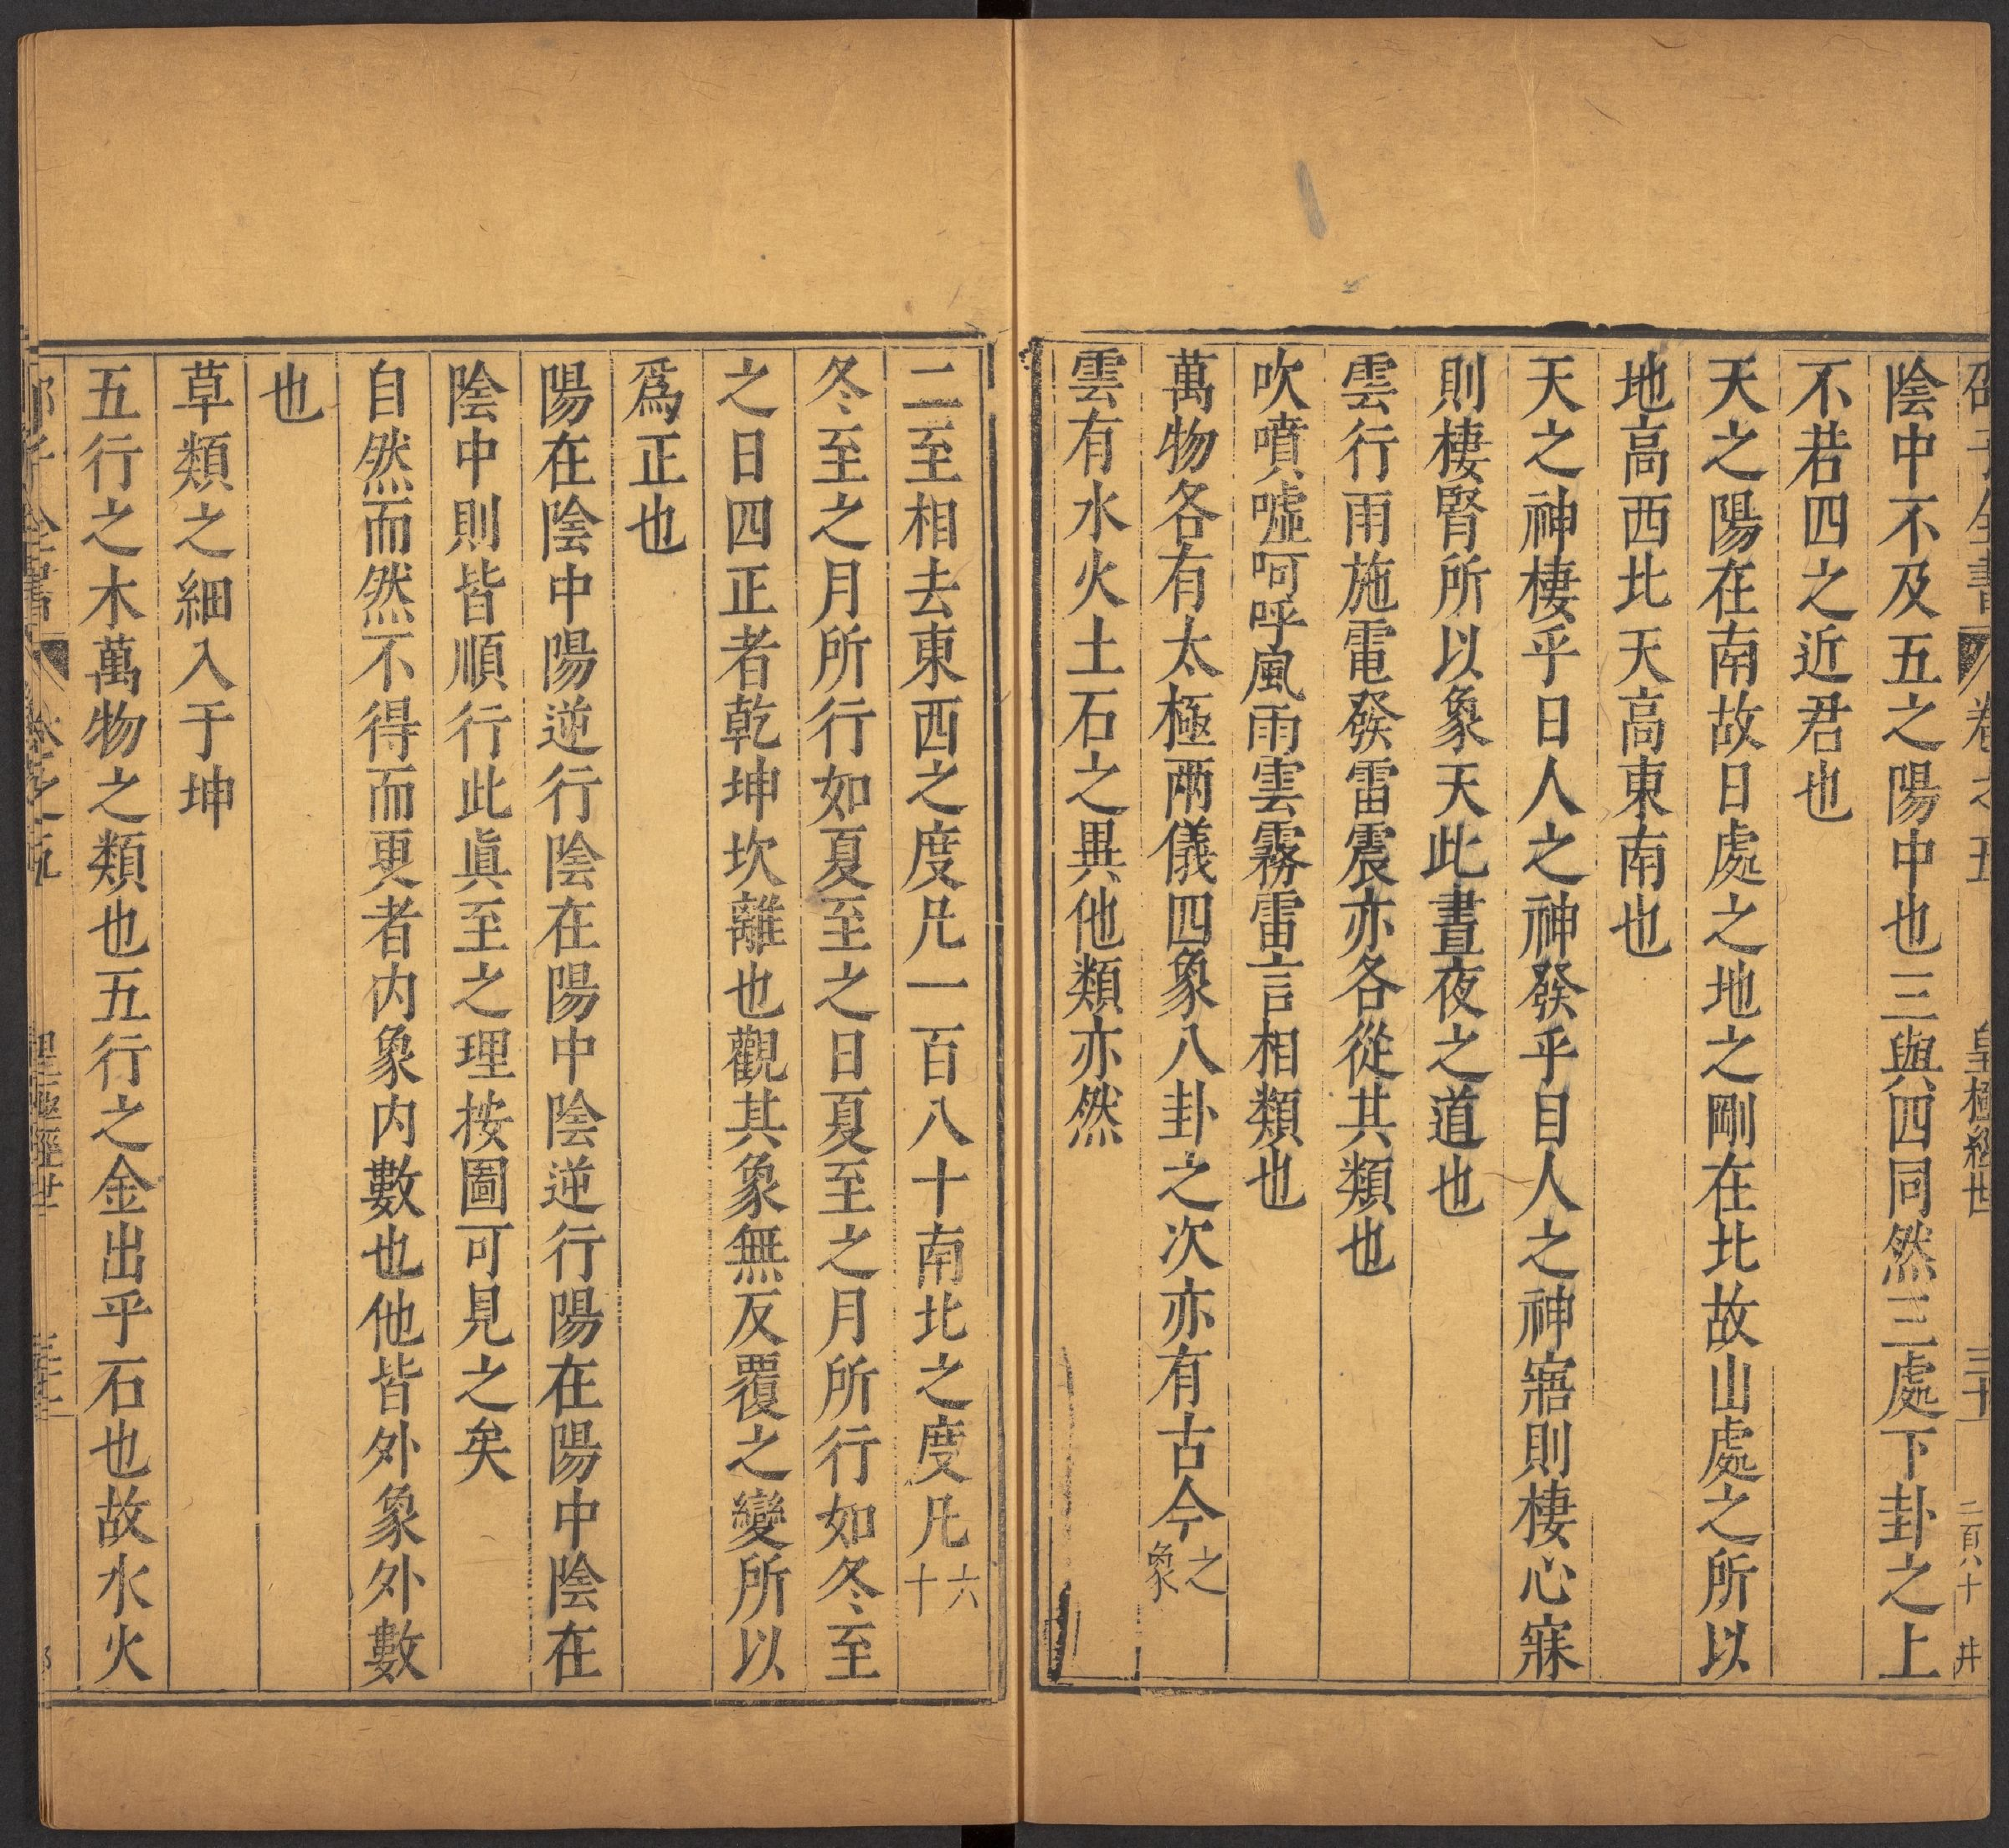 邵子全書 卷之五 皇極經世 三十 二百八十 井
陰中不及五之陽中也三與四同然三處下卦之上
不若四之近君也
天之陽在南故日處之地之剛在北故山處之所以
地高西北天高東南也
天之神棲乎日人之神發乎目人之神寤則棲心寐
則棲腎所以象天此晝夜之道也
雲行雨施電發雷震亦各從其類也
吹噴噓呵呼風雨雲霧雷言相類也
萬物各有太極兩儀四象八卦之次亦有古今之象
雲有水火土石之異他類亦然
二至相去東西之度凡一百八十南北之度凡六十
冬至之月所行如夏至之日夏至之月所行如冬至
之日四正者乾坤坎離也觀其象無反覆之變所以
爲正也
陽在陰中陽逆行陰在陽中陰逆行陽在陽中陰在
陰中則皆順行此眞至之理按圖可見之矣
自然而然不得而更者内象内數也他皆外象外數
也
草類之細入于坤
五行之木萬物之類也五行之金出乎石也故水火
邵子全書 卷之五 皇極經世